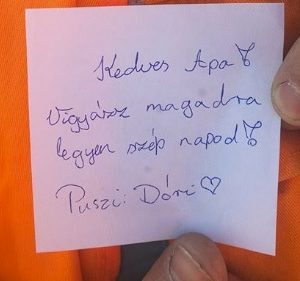 Kedves Apa!
Vigyázz magadra
legyen szép napod!
Puszi: Dóri ♡